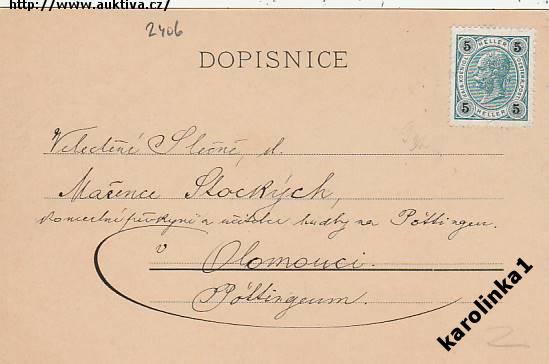 http://www.auktiva.cz/
2406
DOPISNICE
5 HELLER 5
5 HELLER 5
Veleděné Slečně, sl.
Mařence Stockých,
koncertní pěvkyni a učitelce hudby na Pöttingeu.
v Olomouci.
Pöttingeum.
karolinka1
2